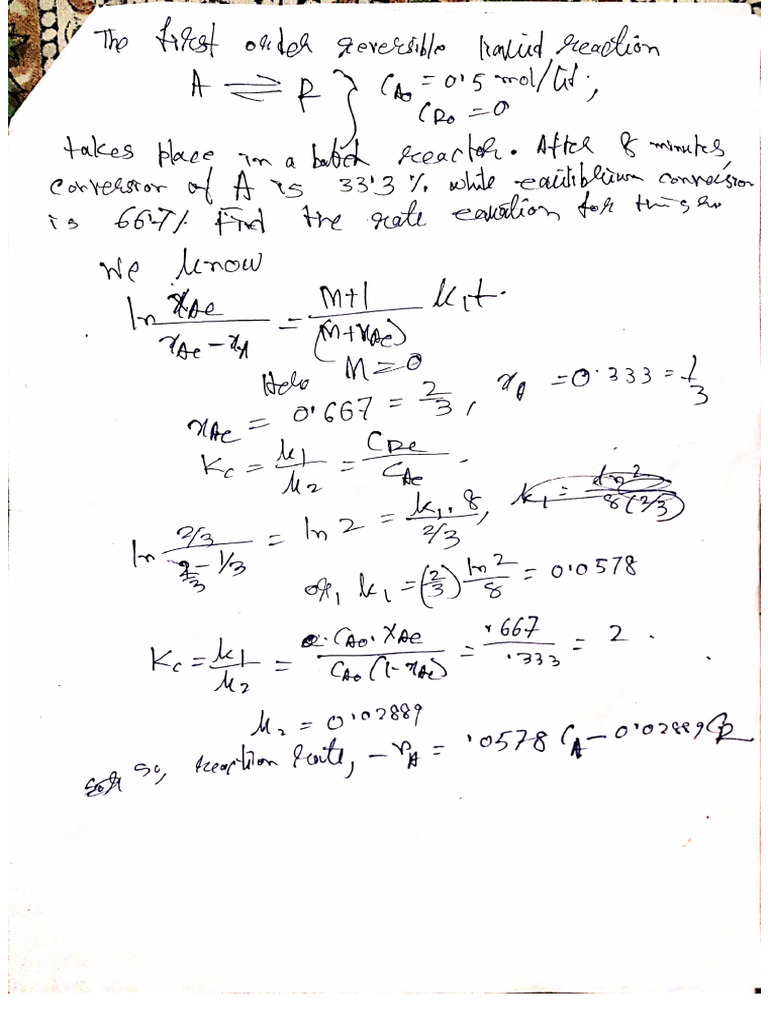 The first order reversible liquid reaction
A ⇌ R } C_A0 = 0.5 mol/lit;
C_R0 = 0
takes place in a batch reactor. After 8 minutes,
conversion of A is 33.3 % while equilibrium conversion
is 66.7% Find the rate equation for this
We know
ln x_Ae / (x_Ae - x_A) = (M+1) / (M+x_Ae) k_1 t.
Here M = 0
x_Ae = 0.667 = 2/3, x_A = 0.333 = 1/3
K_c = k_1/k_2 = C_Re/C_Ae
ln (2/3) / (2/3 - 1/3) = ln 2 = k_1.8 / (2/3),
or, k_1 = (2/3) ln 2 / 8 = 0.0578
K_c = k_1/k_2 = C_A0.X_Ae / C_A0 (1-x_Ae) = .667/.333 = 2.
k_2 = 0.02889
So, reaction rate, -r_A = .0578 C_A - 0.02889 C_R